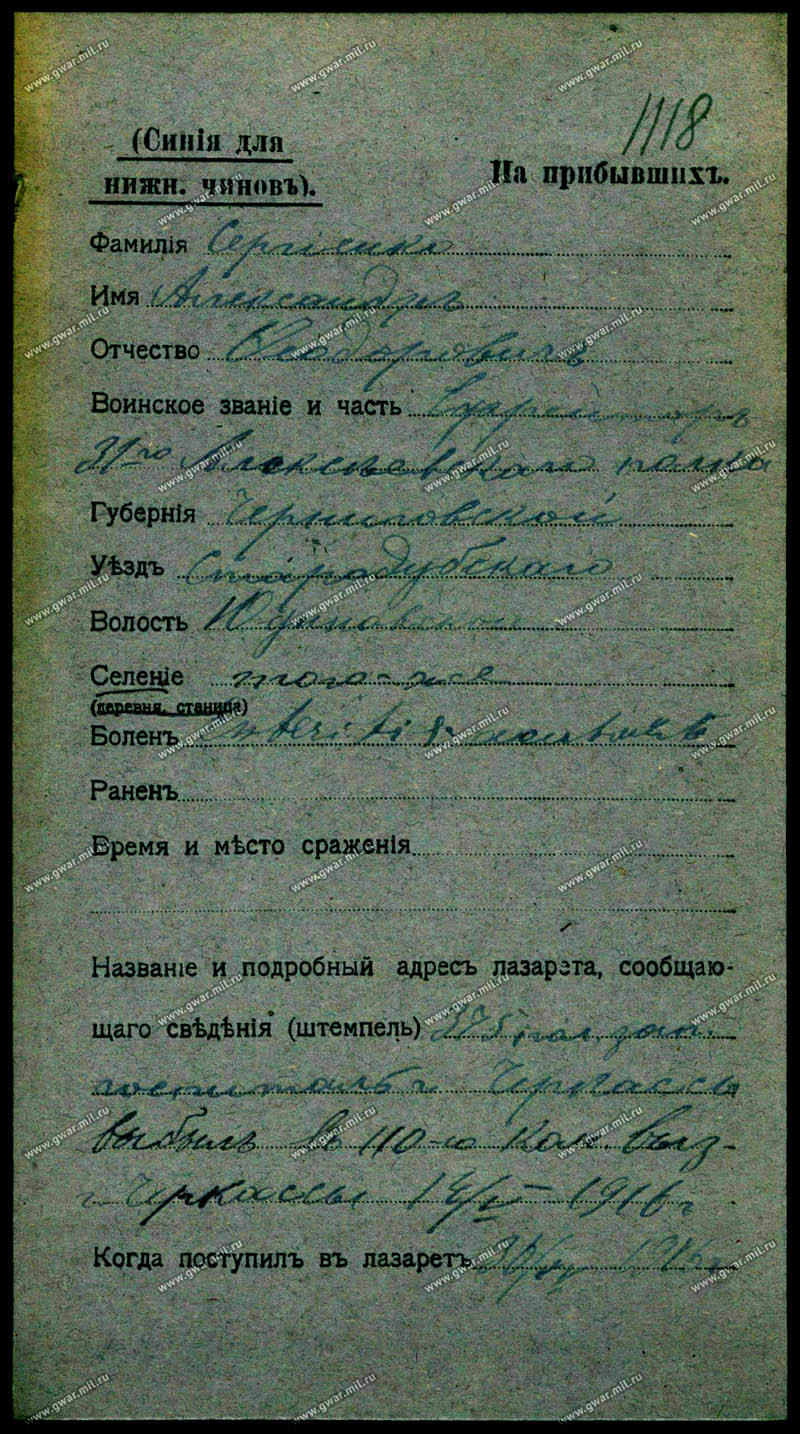 1118
(Синія для
нижн. чиновъ).
На прибывшихъ.
Фамилія Сергіенко
Имя Александръ
Отчество Ѳеодоровичъ
Воинское званіе и часть Ефрейторъ
31го Алексѣевскаго полка
Губернія Черниговской
Уѣздъ Стародубскаго
Волость
Селеніе того-же
(деревня, станица)
Боленъ Enteritis
Раненъ
Время и мѣсто сраженія
Названіе и подробный адресъ лазарета, сообщаю-
щаго свѣдѣнія (штемпель) зап.
госпиталь г. Черкассы
выбылъ въ 110-ю ком. выз-
г. Черкассы 1916 г
Когда поступилъ въ лазаретъ
www.gwar.mil.ru